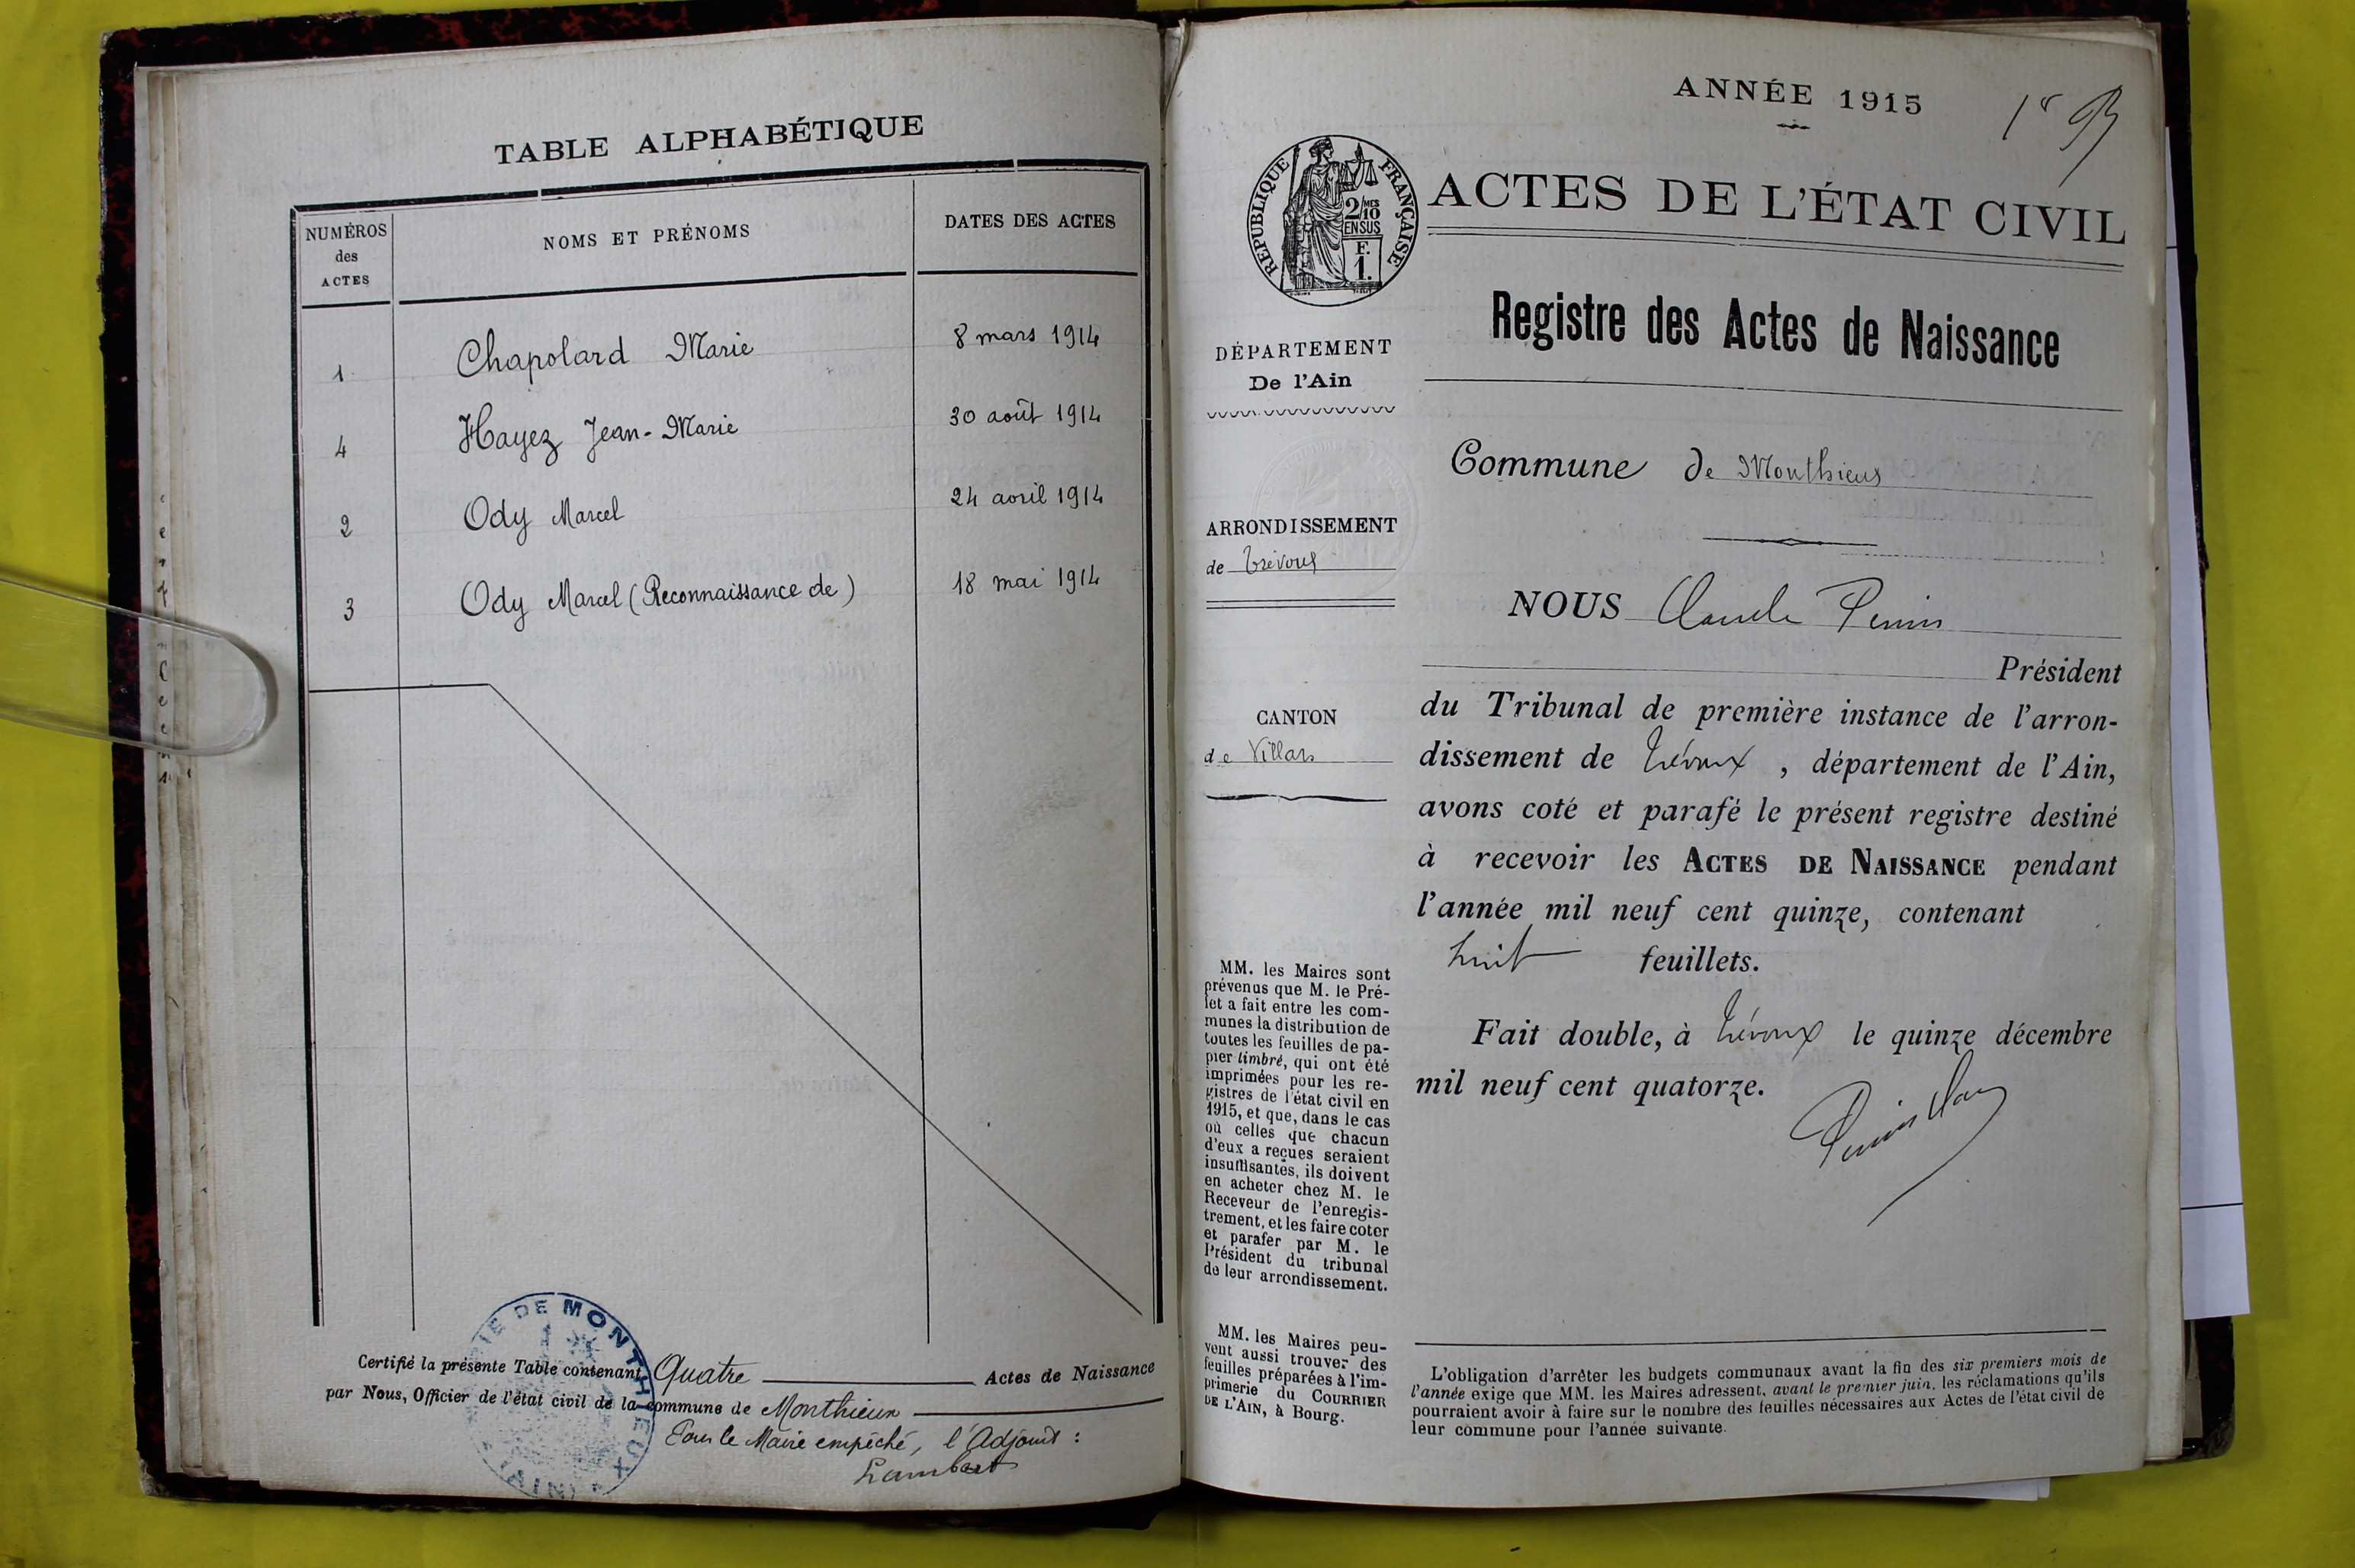 TABLE ALPHABÉTIQUE
NUMÉROS
des
ACTES
NOMS ET PRÉNOMS
DATES DES ACTES
1 Chapolard Marie 8 mars 1914
4 Hayez Jean-Marie 30 août 1914
2 Ody Marcel 24 avril 1914
3 Ody Marcel (Reconnaissance de) 18 mai 1914
Certifié la présente Table contenant Quatre Actes de Naissance
par Nous, Officier de l'état civil de la commune de Monthieux
Pour le Maire empêché, l'Adjoint :
Lambert
IE DE MONTHIEUX
(AIN)
ANNÉE 1915
1r
RÉPUBLIQUE FRANÇAISE
2/10 MES
EN SUS
F.
1.
ACTES DE L'ÉTAT CIVIL
Registre des Actes de Naissance
DÉPARTEMENT
De l'Ain
ARRONDISSEMENT
de Trévoux
CANTON
de Villars
MM. les Maires sont
prévenus que M. le Pré-
fet a fait entre les com-
munes la distribution de
toutes les feuilles de pa-
pier timbré, qui ont été
imprimées pour les re-
gistres de l'état civil en
1915, et que, dans le cas
où celles que chacun
d'eux a reçues seraient
insuffisantes, ils doivent
en acheter chez M. le
Receveur de l'enregis-
trement, et les faire coter
et parafer par M. le
Président du tribunal
de leur arrondissement.
MM. les Maires peu-
vent aussi trouver des
feuilles préparées à l'im-
primerie du COURRIER
DE L'AIN, à Bourg.
Commune de Monthieux
NOUS Claude Perrin
Président
du Tribunal de première instance de l'arron-
dissement de Trévoux , département de l'Ain,
avons coté et parafé le présent registre destiné
à recevoir les ACTES DE NAISSANCE pendant
l'année mil neuf cent quinze, contenant
huit feuillets.
Fait double, à Trévoux le quinze décembre
mil neuf cent quatorze.
L'obligation d'arrêter les budgets communaux avant la fin des six premiers mois de
l'année exige que MM. les Maires adressent, avant le premier juin, les réclamations qu'ils
pourraient avoir à faire sur le nombre des feuilles nécessaires aux Actes de l'état civil de
leur commune pour l'année suivante.